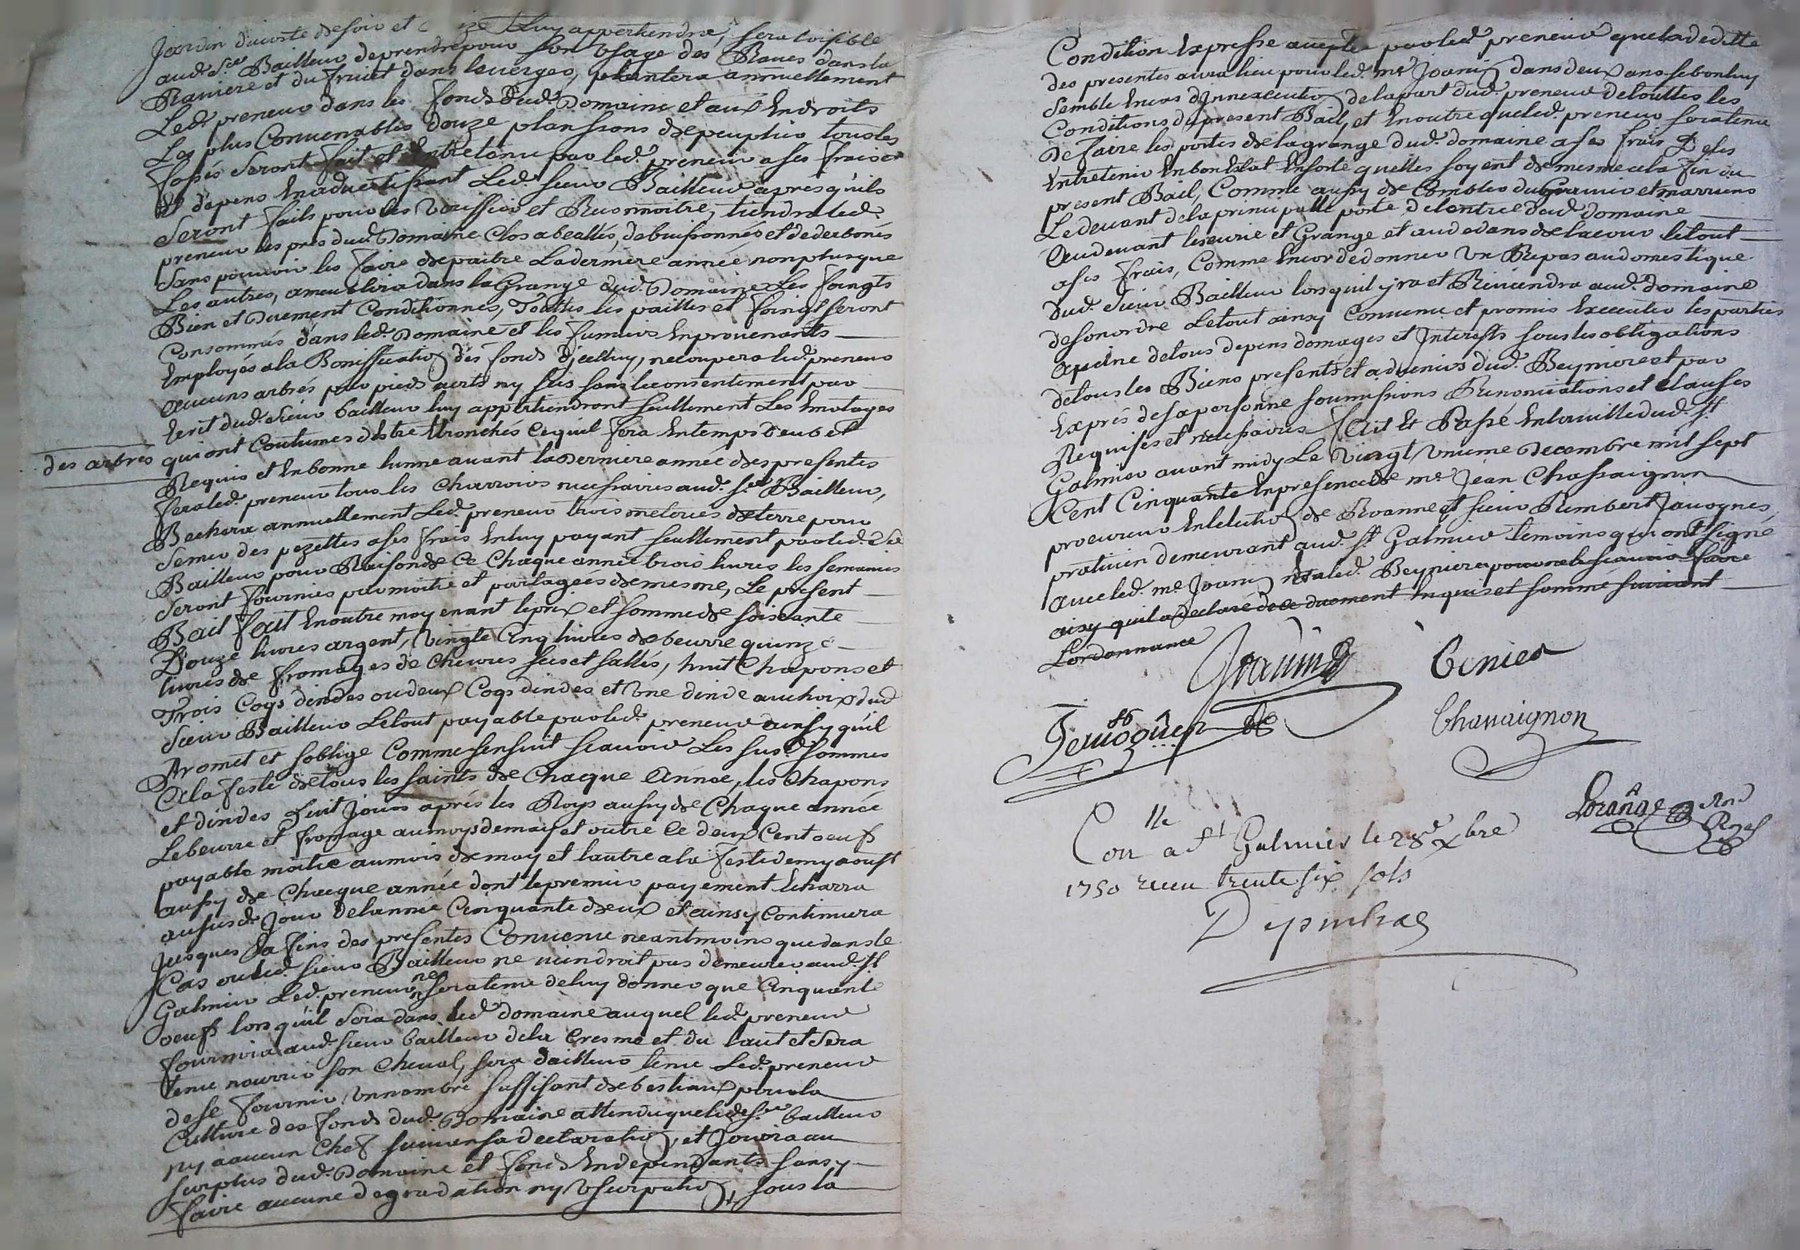 Jardin du costé de soir et luy appertiendra, sera loisible
aud. sr. Bailleur de prendre pour son usage des Raves dans la
Raviere et du fruict dans le verger, plantera annuellement
Led. preneur dans les fonds dud. Domaine et aux Endroits
Les plus Convenables douze planssons de peuplier tous les
fossés seront fait et Entretenu par led. preneur a ses frais et
depens En advertissant Led. sieur Bailleur apres qu'ils
Seront faits pour les veriffier et Reconnoitre, tiendra led.
preneur les prés dud. Domaine Clos a beallés, debuissonnés et dederbonés
sans pouvoir les faire depaitre La derniere année non plus que
Les autres, ameublera dans la Grange dud. Domaine Les foingts
Bien et duement Conditionnés, Touttes les pailles et foingt seront
Consommés dans led. Domaine et les fumiers En provenants
Employés a la Boniffication des fonds d'jcelluy, ne coupera led. preneur
aucuns arbres par pieds verts ny secs sans le consentement par
Ecrit dud. Sieur bailleur luy appertiendront seullement Les Emotages
des arbres qui ont Coutumes d'Estre tronchés Ce quil fera En temps deub et
Requis et En bonne lunne avant la derniere année des presentes
fera led. preneur tous les charrois necessaires aud. sr. Bailleur,
Bechera annuellement Led. preneur trois meteres de terre pour
Semer des pezettes a ses frais En luy payant seullement par led. Sr
Bailleur pour Raison de Ce Chaque année trois livres les semances
Seront fournies par moitié et partagées de mesme, Le present
Bail fait En outre moyenant le prix et somme de soixante
Douze livres argent, vingt Cinq livres de beurre quinze
livres de fromages de Chevres secs et sallés, huit Chapons et
Trois Coqs dindes ou deux Coqs dindes et Une dinde au choix dud
Sieur Bailleur Le tout payable par led. preneur ainsy qu'il
Promet et soblige Comme sensuit scavoir Les susd. sommes
a la feste de tous les saints de Chaque Année, les Chapons
et dindes huit Jours aprés les Roys aussy de Chaque année
Le beurre et fromage au moys de may et outre Ce deux Cent oeufs
payable moitié au mois de may et lautre a la feste de my aoust
aussy de Chacque année dont le premier payement Echerra
aususd. Jour de lannée Cinquante deux et ainsy Continuera
Jusques La fins des presentes Convenu neantmoins que dans le
Cas ou led. sieur Bailleur ne viendroit pas demeurer aud. St
Galmier Led. preneur ne sera tenu de luy donner que Cinquante
oeufs lors qu'il sera dans led. domaine auquel led. preneur
fournira aud. sieur bailleur de la Cresme et du lait et sera
tenu nourrir son Cheval, sera d'ailleurs tenu Led. preneur
de se fournir un nombre suffisant de bestiaux pour la
Culture des fonds dud. Domaine attendu que led. Sr. bailleur
ny a aucun Chef suivant sa declaration, et Jouira au
surplus dud. Domaine et fonds En dependants sans y
faire aucune degradation ny usurpation, sous la
Condition Expresse acceptée par led. preneur que la deditte
des presentes aura lieu pour led. me. Joanin dans deux ans se bon luy
Semble En Cas d'Jnnexecution de la part dud. preneur de touttes les
Conditions du present Bail, et En outre que led. preneur sera tenu
De faire les portes de la grange dud. domaine a ses frais De les
Entretenir En bon Estat En sorte quelles soyent de mesme a la fin du
present Bail, Comme aussy de Combler du gravier et marrains
Le devant de la principalle porte de lentrée dud. domaine
Au devant lescurie et Grange et au dedans de la cour le tout
a ses frais, Comme Encor de donner un Repas au domestique
Dud. Sieur Bailleur lors quil yra et Reviendra aud. domaine
de son ordre Le tout ainsy Convenu et promis Executer les parties
a peine de tous depens domages et Jnterests sous les obligations
de tous les Biens presents et advenirs dud. Beyniere et par
Exprés de sa personne soumissions Renonciations et Clauses
Requises et necessaires fait Et Passé En la ville dud. St
Galmier avant midy Le vingt unieme decembre mil sept
Cent Cinquante En presence de me Jean Chassaignon
procureur En lelection de Roanne et sieur Rembert Javogues
praticien demeurant aud. St Galmier temoins qui ont signé
avec led. me Joanin non led. Beyniere pour ne le scavoir faire
aisy quil a declaré de ce duement Enquis et sommé suivant
Lordonnance
Joannin Benier
Javogues Chassaignon
Coll
Con a St Galmier le 28e xbre
1750 recu trente six sols